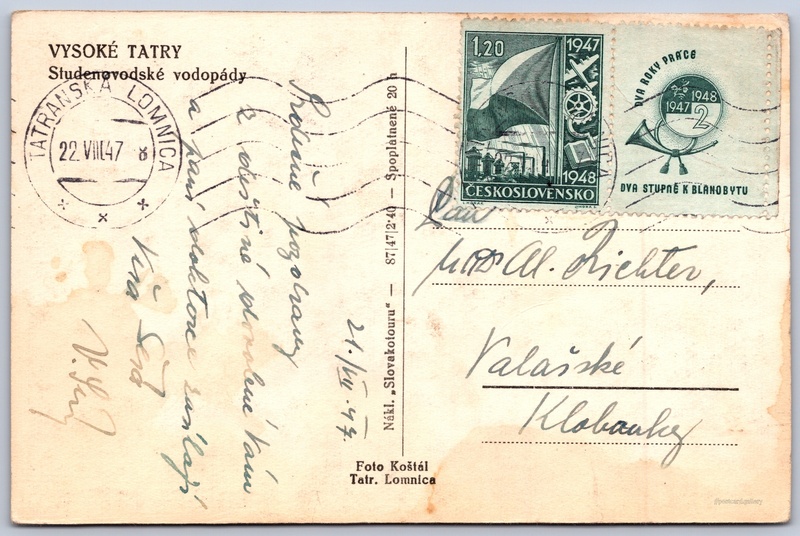 VYSOKÉ TATRY
Studenovodské vodopády
TATRANSKÁ LOMNICA
22.VIII.47 8
Srdečné pozdravy
z deštivé dovolené Vám
a paní doktorce zasílají
Víťa
21./VIII. 47.
Nákl. „Slovakotouru" — 87|47|2-40 — Spoplatnené 20 h
Foto Koštál
Tatr. Lomnica
1,20
1947
1948
ČESKOSLOVENSKO
DVA ROKY PRÁCE
1947 1948
2
DVA STUPNĚ K BLAHOBYTU
Pan
Al. Richter,
Valašské
Klobouky
@postcard.gallery